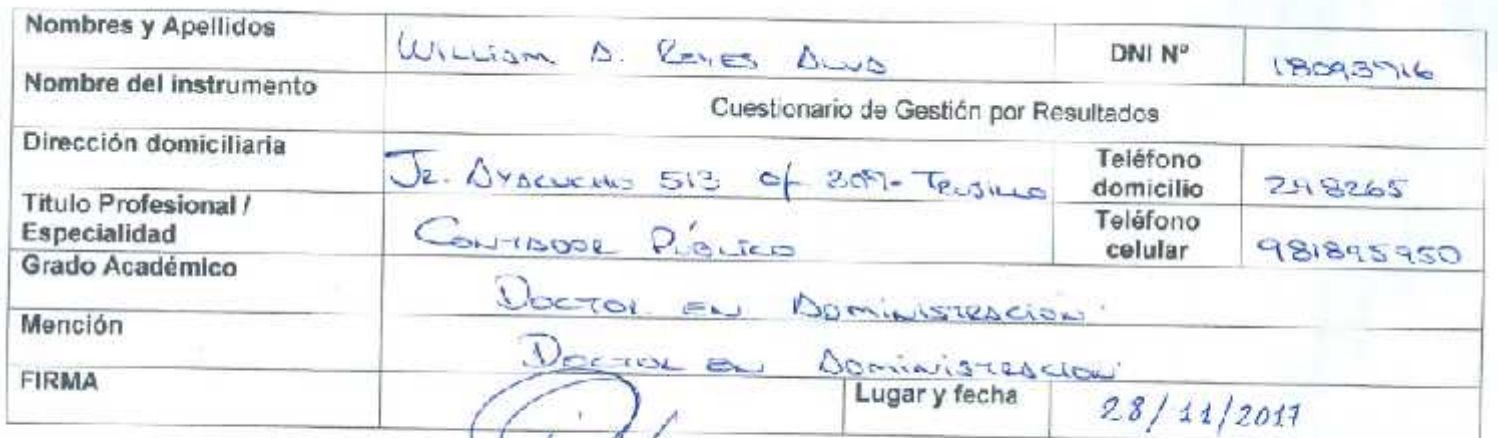 Nombres y Apellidos WILLIAM A. REYES ALVA DNI Nº 18093716
Nombre del instrumento Cuestionario de Gestión por Resultados
Dirección domiciliaria JR. AYACUCHO 513 Of - TRUJILLO Teléfono domicilio
Título Profesional / Especialidad CONTADOR PÚBLICO Teléfono celular
Grado Académico DOCTOR EN ADMINISTRACION
Mención DOCTOR EN ADMINISTRACION
FIRMA Lugar y fecha 28/11/2017